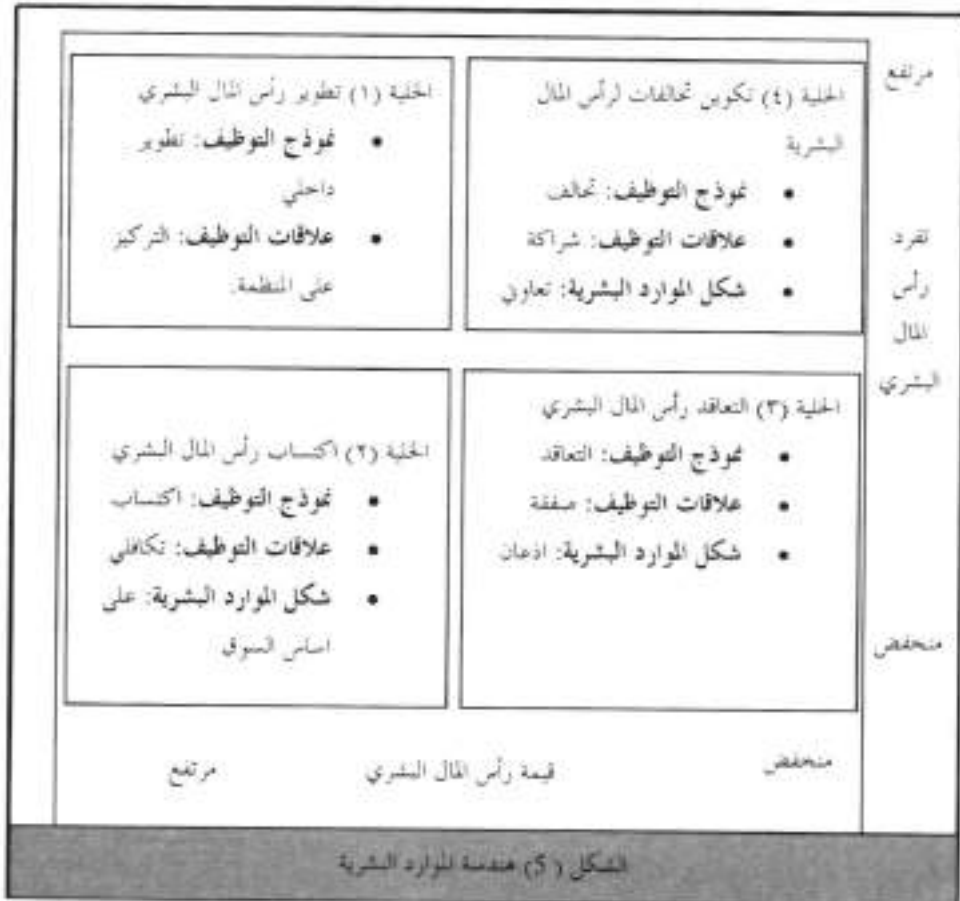 مرتفع
تفرد
رأس
المال
البشري
منخفض
الخلية (٤) تكوين تحالفات لرأس المال
البشرية
• نموذج التوظيف: تحالف
• علاقات التوظيف: شراكة
• شكل الموارد البشرية: تعاوني
الخلية (١) تطوير رأس المال البشري
• نموذج التوظيف: تطوير
داخلي
• علاقات التوظيف: التركيز
على المنظمة.
الخلية (٣) التعاقد رأس المال البشري
• نموذج التوظيف: التعاقد
• علاقات التوظيف: صفقة
• شكل الموارد البشرية: اذعان
الخلية (٢) اكتساب رأس المال البشري
• نموذج التوظيف: اكتساب
• علاقات التوظيف: تكافلي
• شكل الموارد البشرية: على
اساس السوق
منخفض
قيمة رأس المال البشري
مرتفع
الشكل (5) هندسة الموارد البشرية